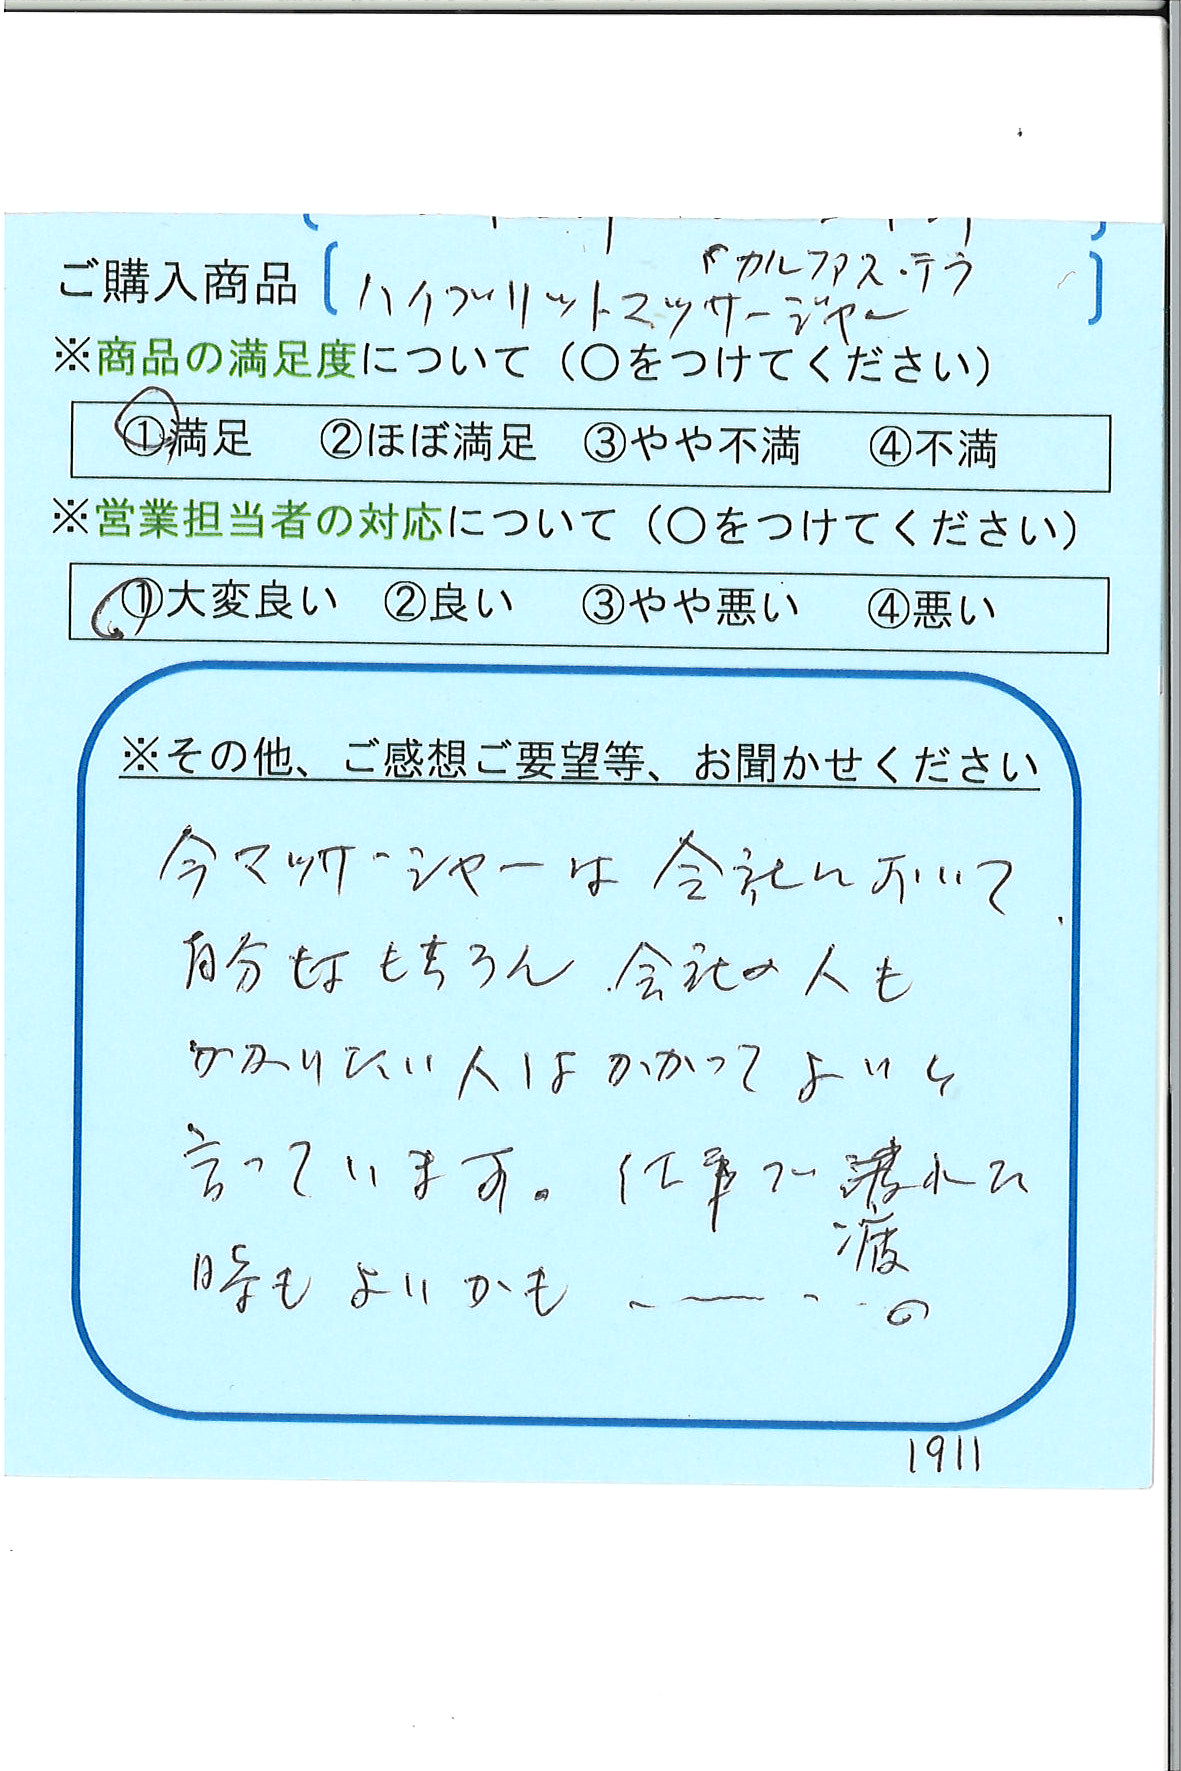 ご購入商品
「カルファス・テラ
ハイブリットマッサージャー
※商品の満足度について（○をつけてください）
①満足 ②ほぼ満足 ③やや不満 ④不満
※営業担当者の対応について（○をつけてください）
①大変良い ②良い ③やや悪い ④悪い
※その他、ご感想ご要望等、お聞かせください
今マッサージャーは会社において
自分はもちろん会社の人も
かかりたい人はかかってよいと
言っています。仕事で疲れた
時もよいかも
1911